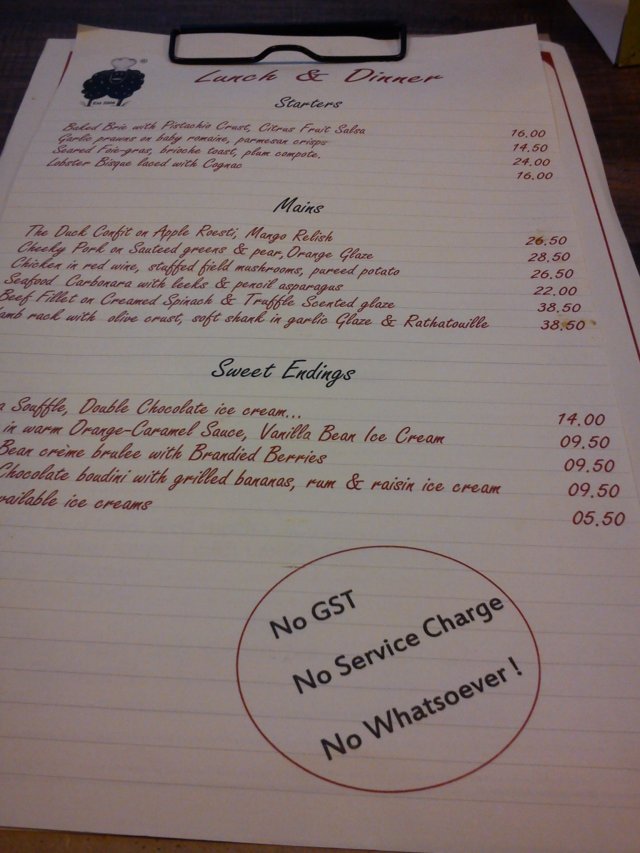 Lunch & Dinner
Starters
Baked Brie with Pistachio Crust, Citrus Fruit Salsa 16.00
Garlic prawns on baby romaine, parmesan crisps 14.50
Seared Foie-gras, brioche toast, plum compote, 24.00
Lobster Bisque laced with Cognac 16.00
Mains
The Duck Confit on Apple Roesti, Mango Relish 26.50
Cheeky Pork on Sauteed greens & pear, Orange Glaze 28.50
Chicken in red wine, stuffed field mushrooms, pureed potato 26.50
Seafood Carbonara with leeks & pencil asparagus 22.00
Beef Fillet on Creamed Spinach & Truffle Scented glaze 38.50
amb rack with olive crust, soft shank in garlic Glaze & Rathatouille 38.50
Sweet Endings
a Souffle, Double Chocolate ice cream... 14.00
in warm Orange-Caramel Sauce, Vanilla Bean Ice Cream 09.50
Bean crème brulee with Brandied Berries 09.50
Chocolate boudini with grilled bananas, rum & raisin ice cream 09.50
vailable ice creams 05.50
No GST
No Service Charge
No Whatsoever !